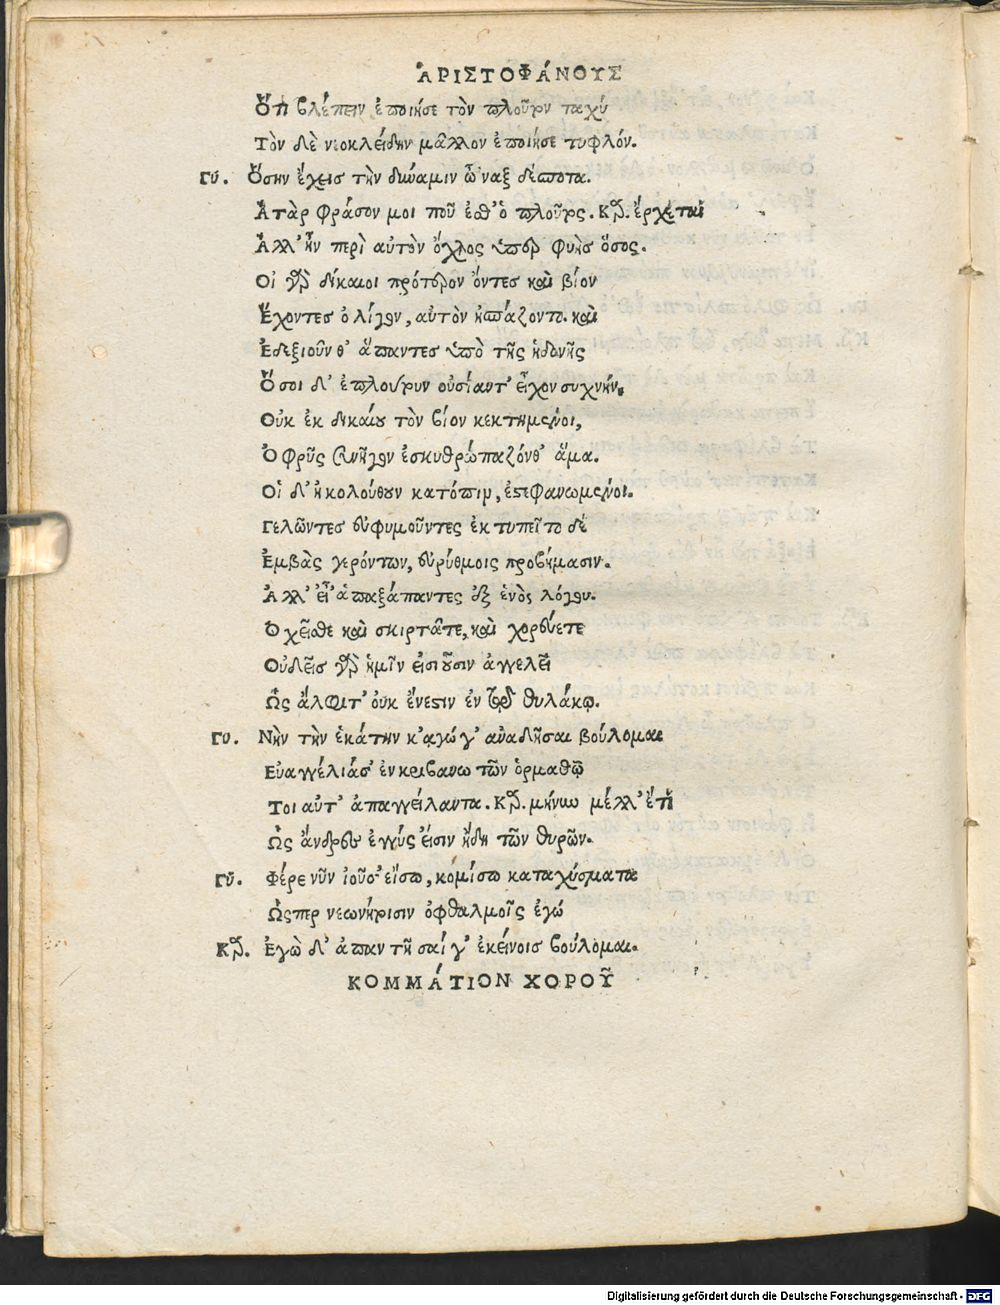 ἈΡΙΣΤΟΦΆΝΟΥΣ
Ὅτι βλέπειν ἐποίησε τὸν πλοῦτον ταχύ
Τὸν δὲ νεοκλείδην μᾶλλον ἐποίησε τυφλόν.
Γύ. Ὅσην ἔχεις τὴν δύναμιν ὦ'ναξ δέσποτα.
Ἀτὰρ φράσον μοι ποῦ ἐσθ' ὁ πλοῦτος. Κρ. ἔρχεται
Ἀλλ' ἦν περὶ αὐτὸν ὄχλος ὑπερφυὴς ὅσος.
Οἱ γὰρ δίκαιοι πρότερον ὄντες καὶ βίον
Ἔχοντες ὀλίγον, αὐτὸν ἠσπάζοντο. καὶ
Ἐδεξιοῦνθ' ἅπαντες ὑπὸ τῆς ἡδονῆς
Ὅσοι δ' ἐπλούτουν οὐσίαντ' εἶχον συχνήν.
Οὐκ ἐκ δικαίου τὸν βίον κεκτημένοι,
Ὀφρῦς συνῆγον ἐσκυθρώπαζόνθ' ἅμα.
Οἱ δ' ἠκολούθουν κατόπιν, ἐστεφανωμένοι.
Γελῶντες εὐφημοῦντες ἐκτυπεῖτο δέ
Ἐμβὰς γερόντων, εὐρύθμοις προβήμασιν.
Ἀλλ' εἶ' ἁπαξάπαντες ἐξ ἑνὸς λόγου.
Ὀρχεῖσθε καὶ σκιρτᾶτε, καὶ χορεύετε
Οὐδεὶς γὰρ ἡμῖν εἰσιοῦσιν ἀγγελεῖ
Ὡς ἄλφιτ' οὐκ ἔνεστιν ἐν τῷ θυλάκῳ.
Γυ. Νὴν τὴν ἑκάτην κ'αγώ γ' ἀναδῆσαι βούλομαι
Εὐαγγέλιάσ' ἐν κριβανω τῶν ὁρμαθῷ
Τοι αὖτ' ἀπαγγείλαντα. Κρ. μήνυω μέλλ' ἔτι
Ὡς ἄνδρες ἐγγύς εἰσιν ἤδη τῶν θυρῶν.
Γύ. Φέρε νῦν ἰοῦσ' εἴσω, κομίσω καταχύσματα
Ὥσπερ νεωνήτοισιν ὀφθαλμοῖς ἐγώ
Κρ. Ἐγὼ δ' ἀπαντῆσαί γ' ἐκείνοις βούλομαι.
ΚΟΜΜΆΤΙΟΝ ΧΟΡΟΥ͂
Digitalisierung gefördert durch die Deutsche Forschungsgemeinschaft - DFG